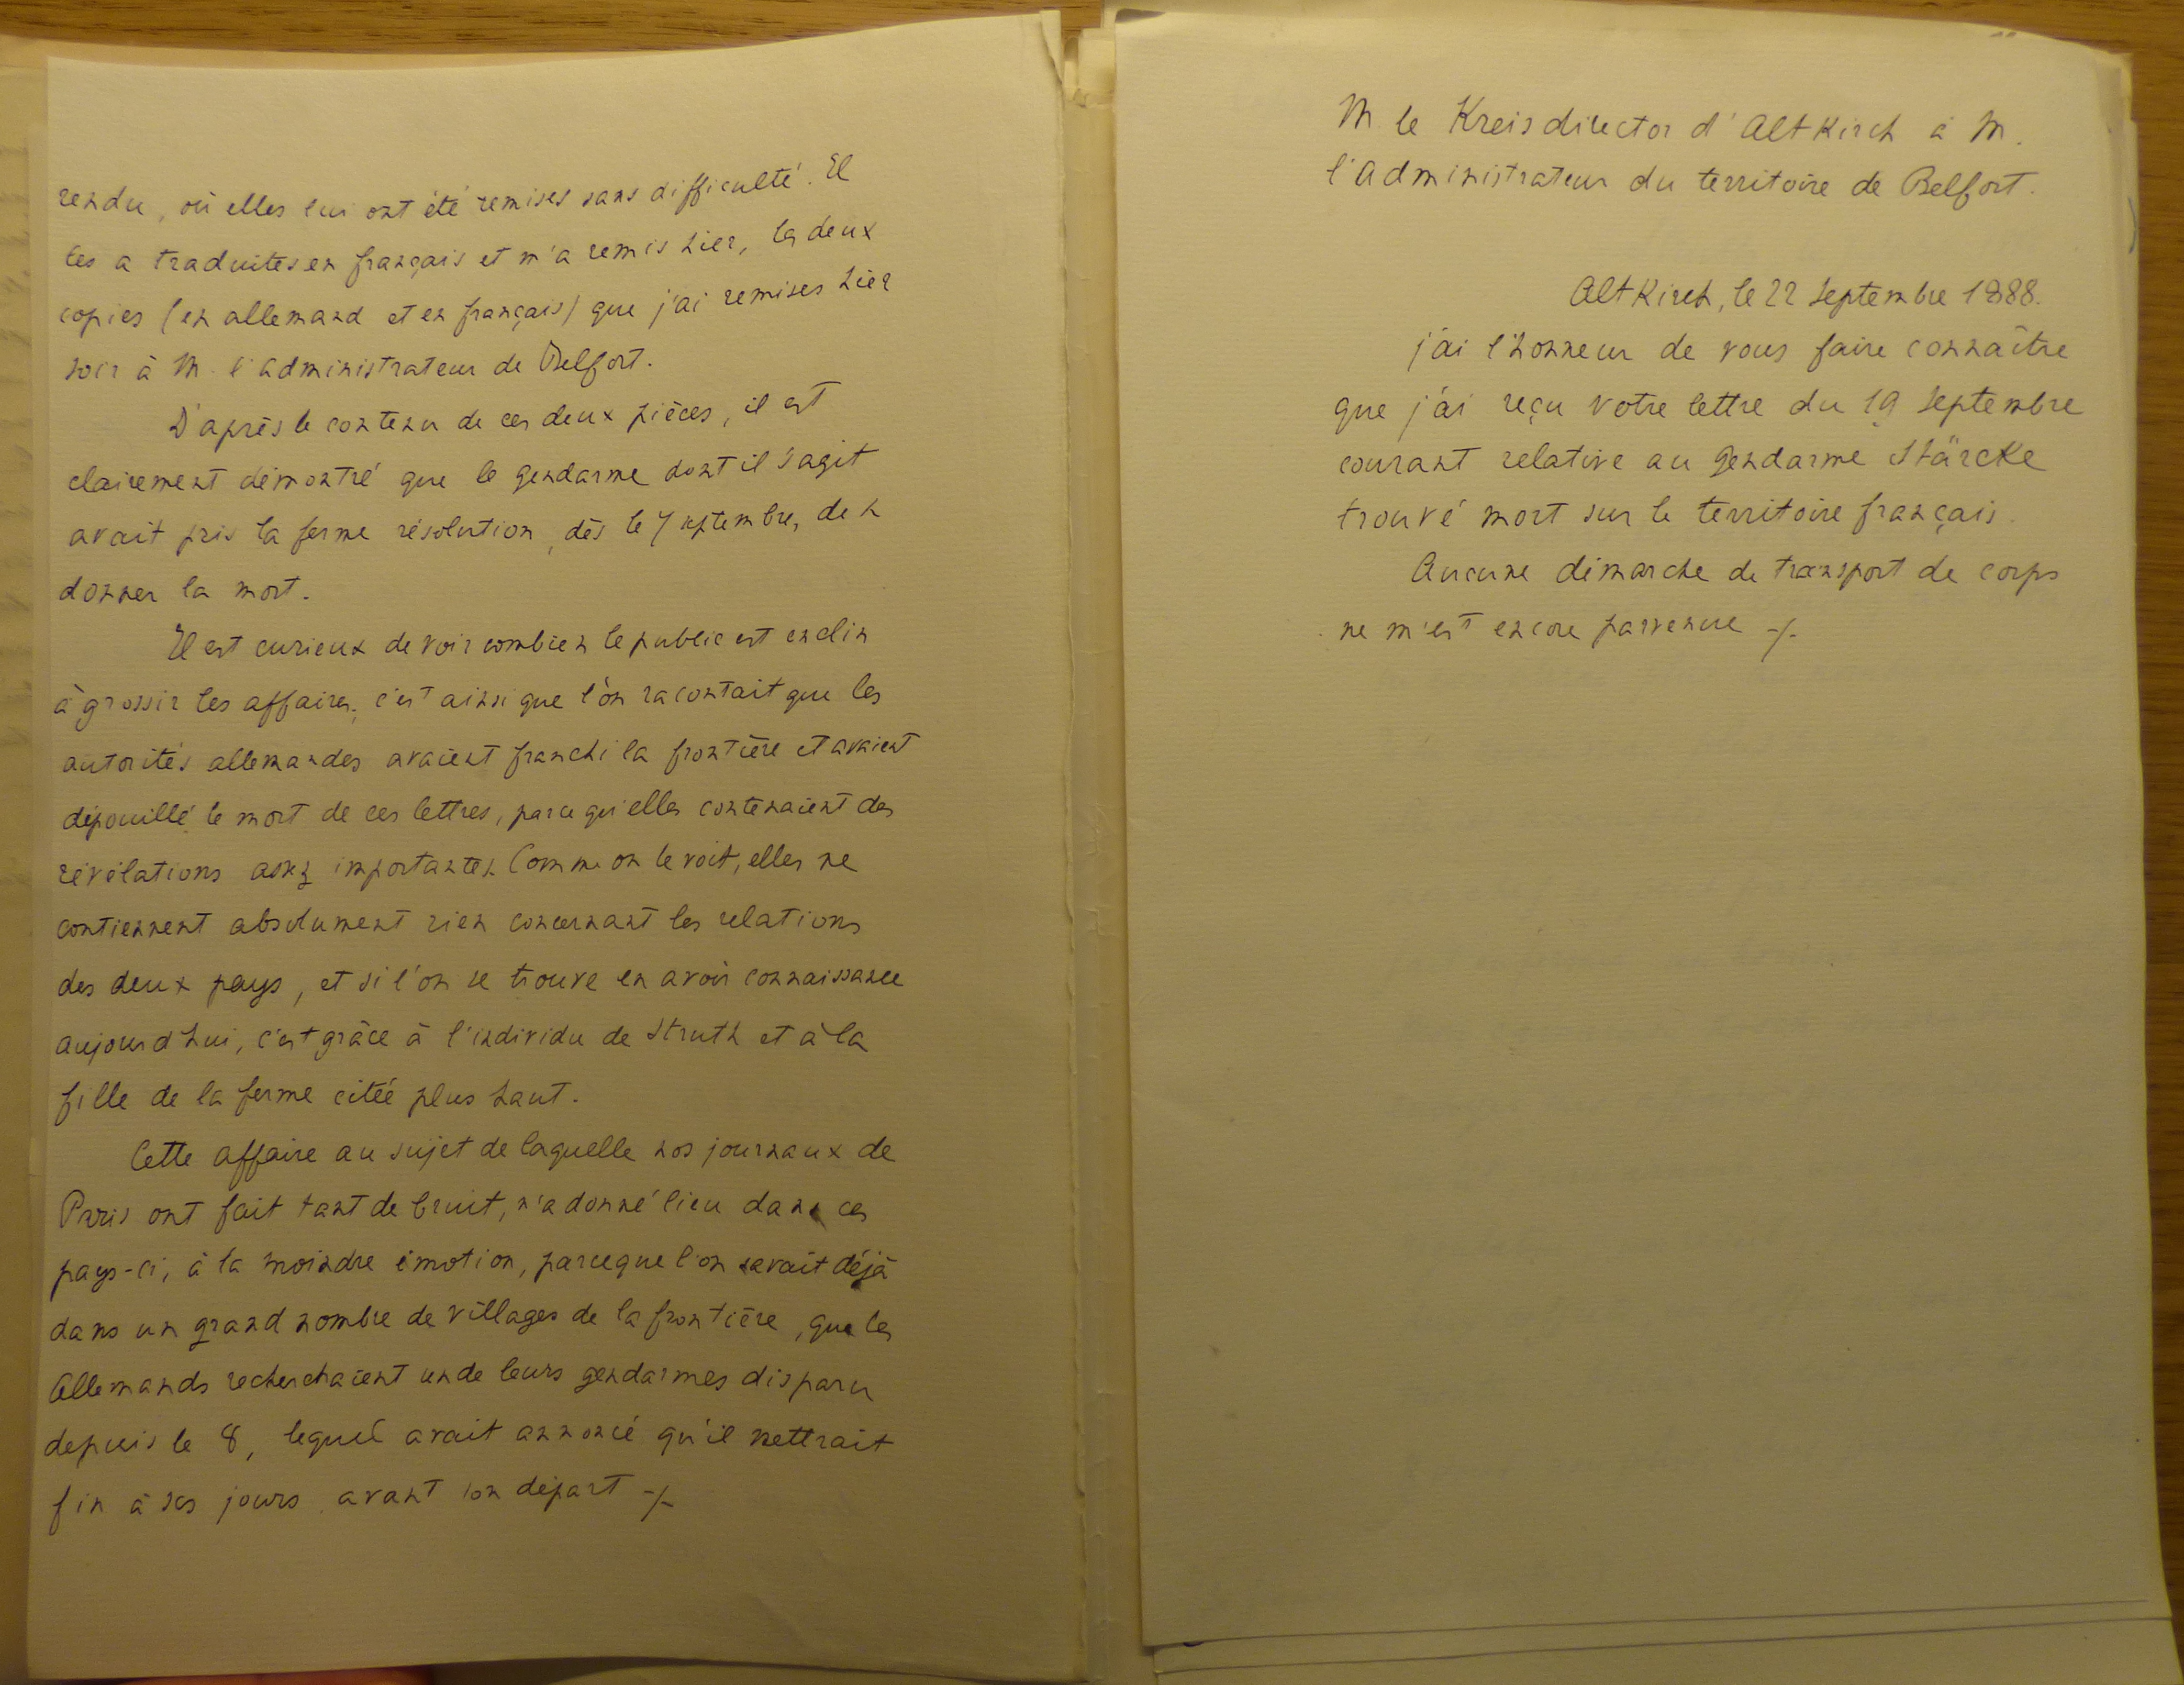 rendu, où elles lui ont été remises sans difficulté. Il
les a traduites en français et m'a remis hier, les deux
copies (en allemand et en français) que j'ai remises hier
soir à M. l'administrateur de Belfort.
D'après le contenu de ces deux pièces, il est
clairement démontré que le gendarme dont il s'agit
avait pris la ferme résolution, dès le 7 septembre, de se
donner la mort.
Il est curieux de voir combien le public est enclin
à grossir les affaires, c'est ainsi que l'on racontait que les
autorités allemandes avaient franchi la frontière et avaient
dépouillé le mort de ces lettres, parce qu'elles contenaient des
révélations assez importantes. Comme on le voit, elles ne
contiennent absolument rien concernant les relations
des deux pays, et si l'on se trouve en avoir connaissance
aujourd'hui, c'est grâce à l'individu de Struth et à la
fille de la ferme citée plus haut.
Cette affaire au sujet de laquelle nos journaux de
Paris ont fait tant de bruit, n'a donné lieu dans ces
pays-ci, à la moindre émotion, parceque l'on savait déjà
dans un grand nombre de villages de la frontière, que les
Allemands recherchaient un de leurs gendarmes disparu
depuis le 8, lequel avait annoncé qu'il mettrait
fin à ses jours avant son départ -/-
M le Kreisdirector d'Altkirch à M.
l'Administrateur du territoire de Belfort.
Altkirch, le 22 septembre 1888.
j'ai l'honneur de vous faire connaître
que j'ai reçu votre lettre du 19 septembre
courant relative au gendarme Stärcke
trouvé mort sur le territoire français.
Aucune démarche de transport de corps
ne m'est encore parvenue -/-